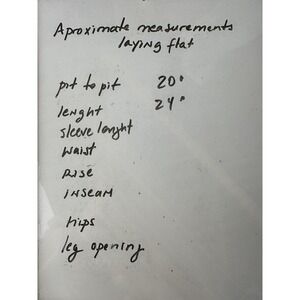 Aproximate measurements
laying flat
pit to pit 20"
lenght 24"
sleeve lenght
waist
RISE
INSEAM
hips
leg opening